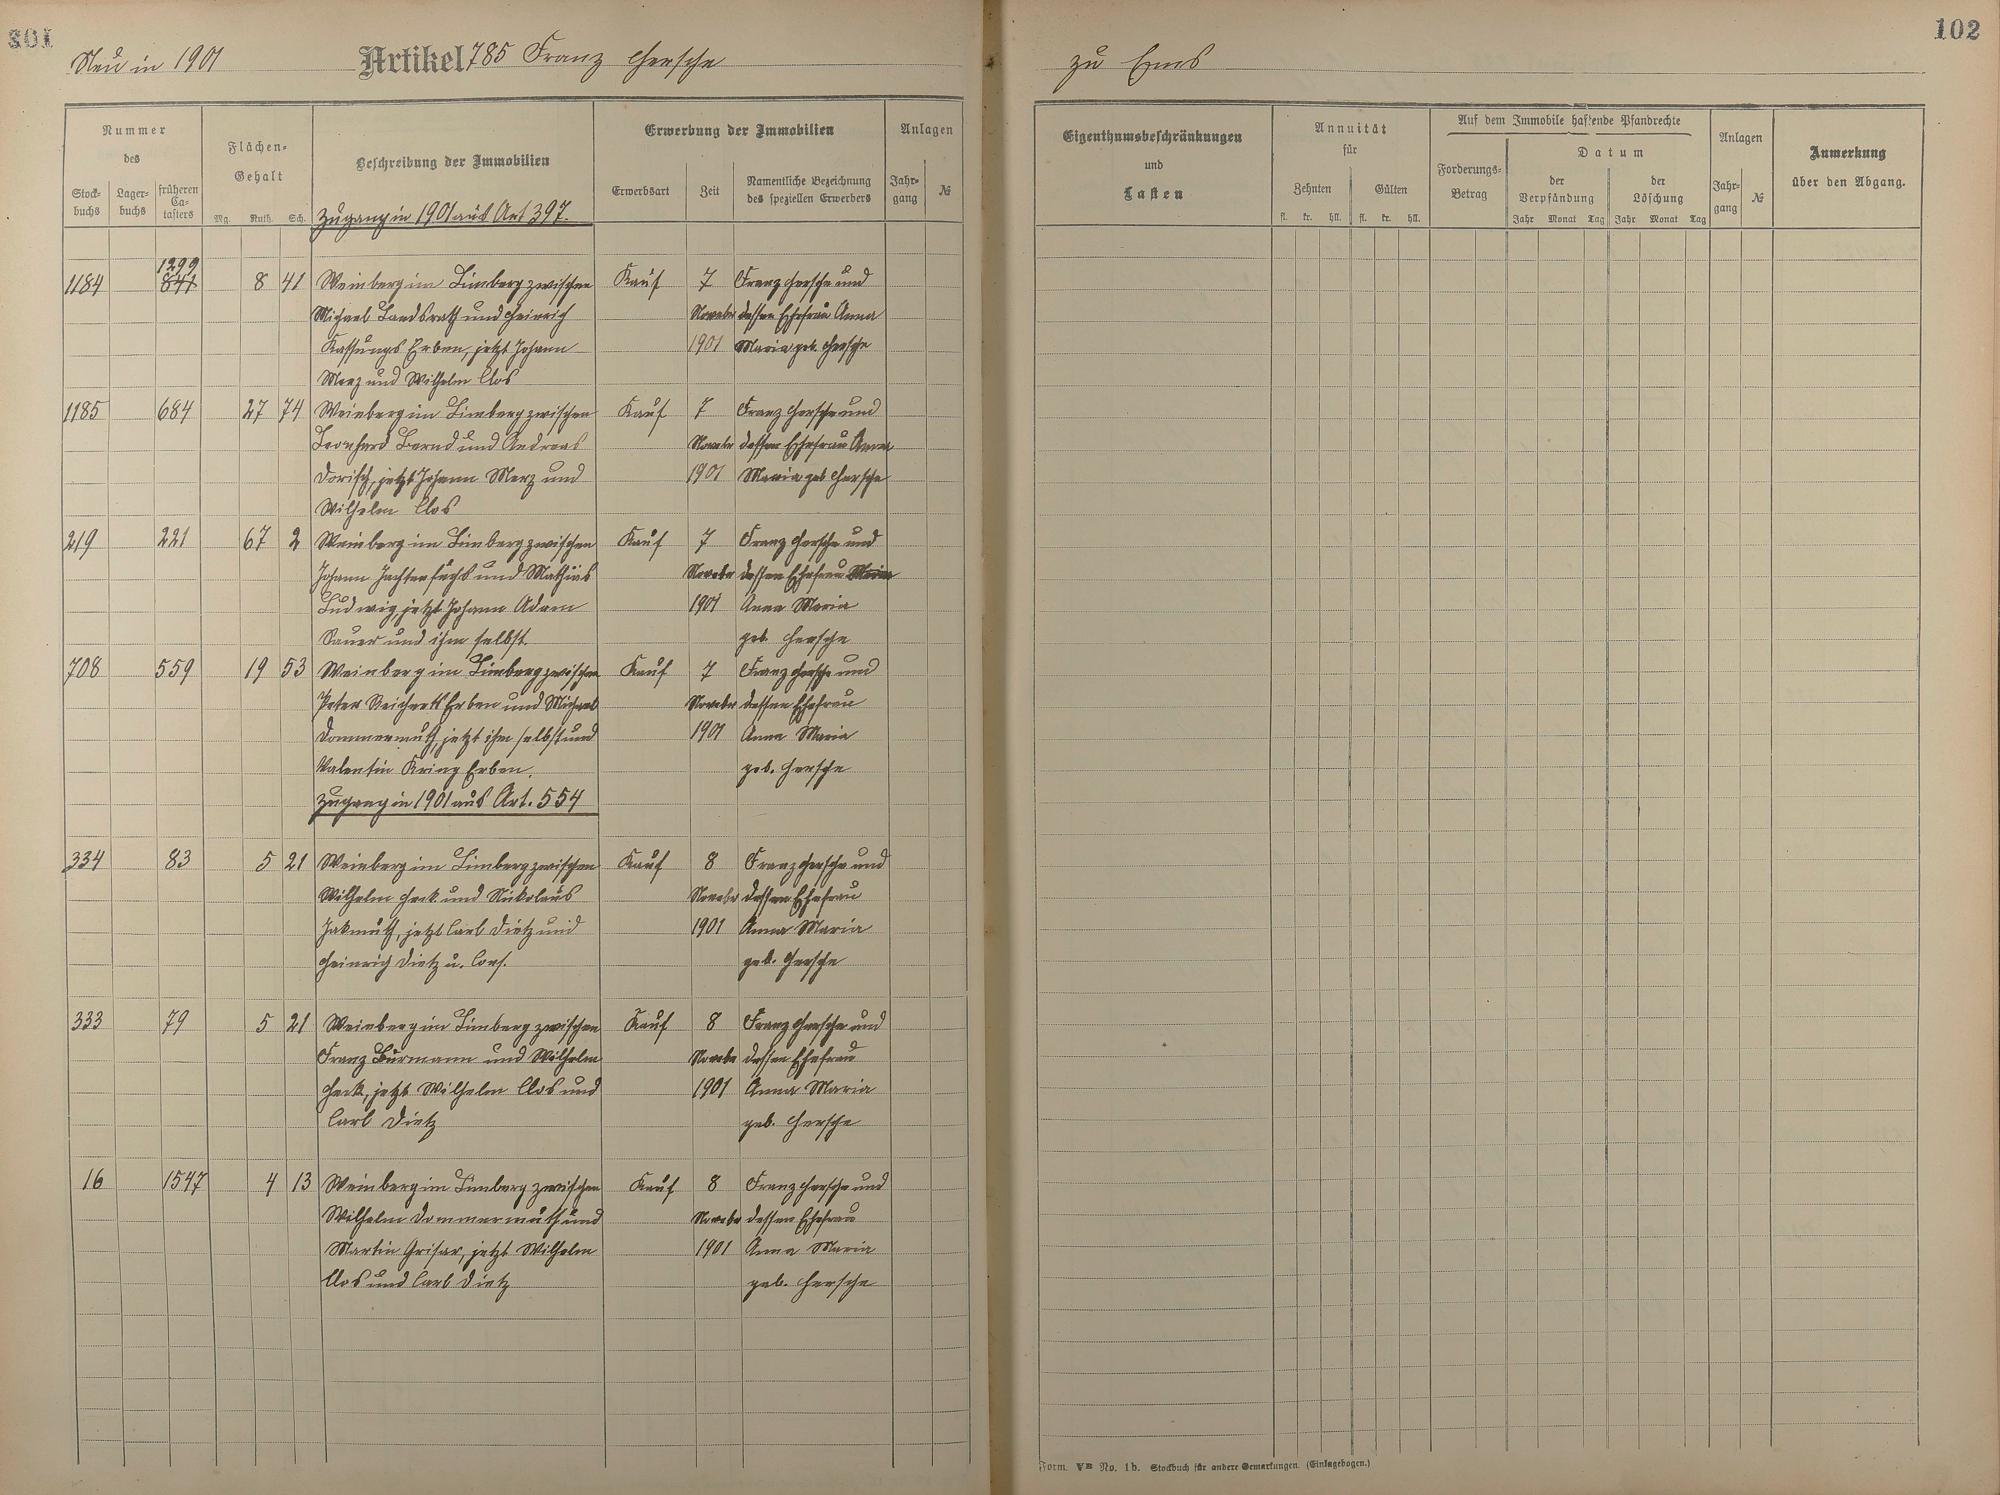 102
Neu in 1901 Artikel 785 Franz Hersche
Nummer
des
Stock-
buchs
Lager-
buchs
früheren
Ca-
tasters
Flächen-
Gehalt
Mg. Ruth. Sch.
Beschreibung der Immobilien
Erwerbung der Immobilien
Erwerbsart
Zeit
Namentliche Bezeichnung
des speziellen Erwerbers
Anlagen
Jahr-
gang
№
Zugang in 1901 aus Art 397.
1299
1184 841 8 41 Weinberg im Limberg zwischen Kauf 7 Franz Hersche und
Michael Landsrath und Heinrich Novebr dessen Ehefrau Anna
Kassungs Erben, jetzt Johann 1901 Maria geb. Hersche
Merz und Wilhelm Clos
1185 684 27 74 Weinberg im Limberg zwischen Kauf 7 Franz Hersche und
Leonhard Bernd und Andreas Novebr dessen Ehefrau Anna
Dorisch, jetzt Johann Merz und 1901 Maria geb Hersche
Wilhelm Clos
219 221 67 2 Weinberg im Limberg zwischen Kauf 7 Franz Hersche und
Johann Jachtenfuchs und Mathias Novebr dessen Ehefrau Maria
Ludwig, jetzt Johann Adam 1901 Anna Maria
Sauer und ihm selbst. geb. Hersche
708 559 19 53 Weinberg im Limberg zwischen Kauf 7 Franz Hersche und
Peter Reicherts Erben und Michael Novebr dessen Ehefrau
Dommermuth, jetzt ihm selbst und 1901 Anna Maria
Valentin Kring Erben. geb. Hersche
Zugang in 1901 aus Art. 554
334 83 5 21 Weinberg im Limberg zwischen Kauf 8 Franz Hersche und
Wilhelm Heck und Nikolaus Novebr dessen Ehefrau
Jakmuth, jetzt Carl Dietz und 1901 Anna Maria
Heinrich Dietz u. Cons. geb. Hersche
333 79 5 21 Weinberg im Limberg zwischen Kauf 8 Franz Hersche und
Franz Burmann und Wilhelm Novebr dessen Ehefrau
Heck, jetzt Wilhelm Clos und 1901 Anna Maria
Carl Dietz geb. Hersche
16 1547 4 13 Weinberg im Limberg zwischen Kauf 8 Franz Hersche und
Wilhelm Dommermuth und Novebr dessen Ehefrau
Martin Grisar, jetzt Wilhelm 1901 Anna Maria
Clos und Carl Dietz geb. Hersche
102
zu Ems
Eigenthumsbeschränkungen
und
Lasten
Annuität
für
Zehnten
Gülten
fl. kr. hll. fl. kr. hll.
Auf dem Immobile haftende Pfandrechte
Forderungs-
Betrag
Datum
der
Verpfändung
Jahr Monat Tag
der
Löschung
Jahr Monat Tag
Anlagen
Jahr-
gang
№
Anmerkung
über den Abgang.
Form. VB No. 1b. Stockbuch für andere Gemarkungen. (Einlagebogen.)